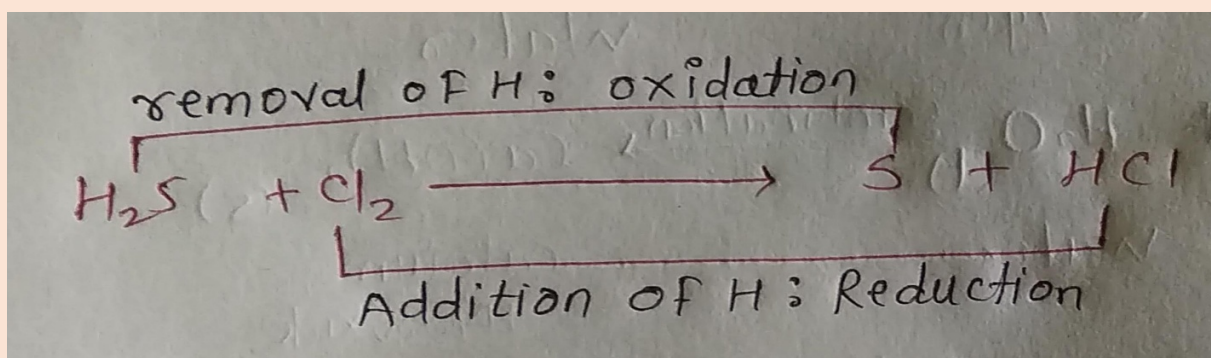 removal of H: oxidation
H₂S + Cl₂ → S + HCl
Addition of H: Reduction